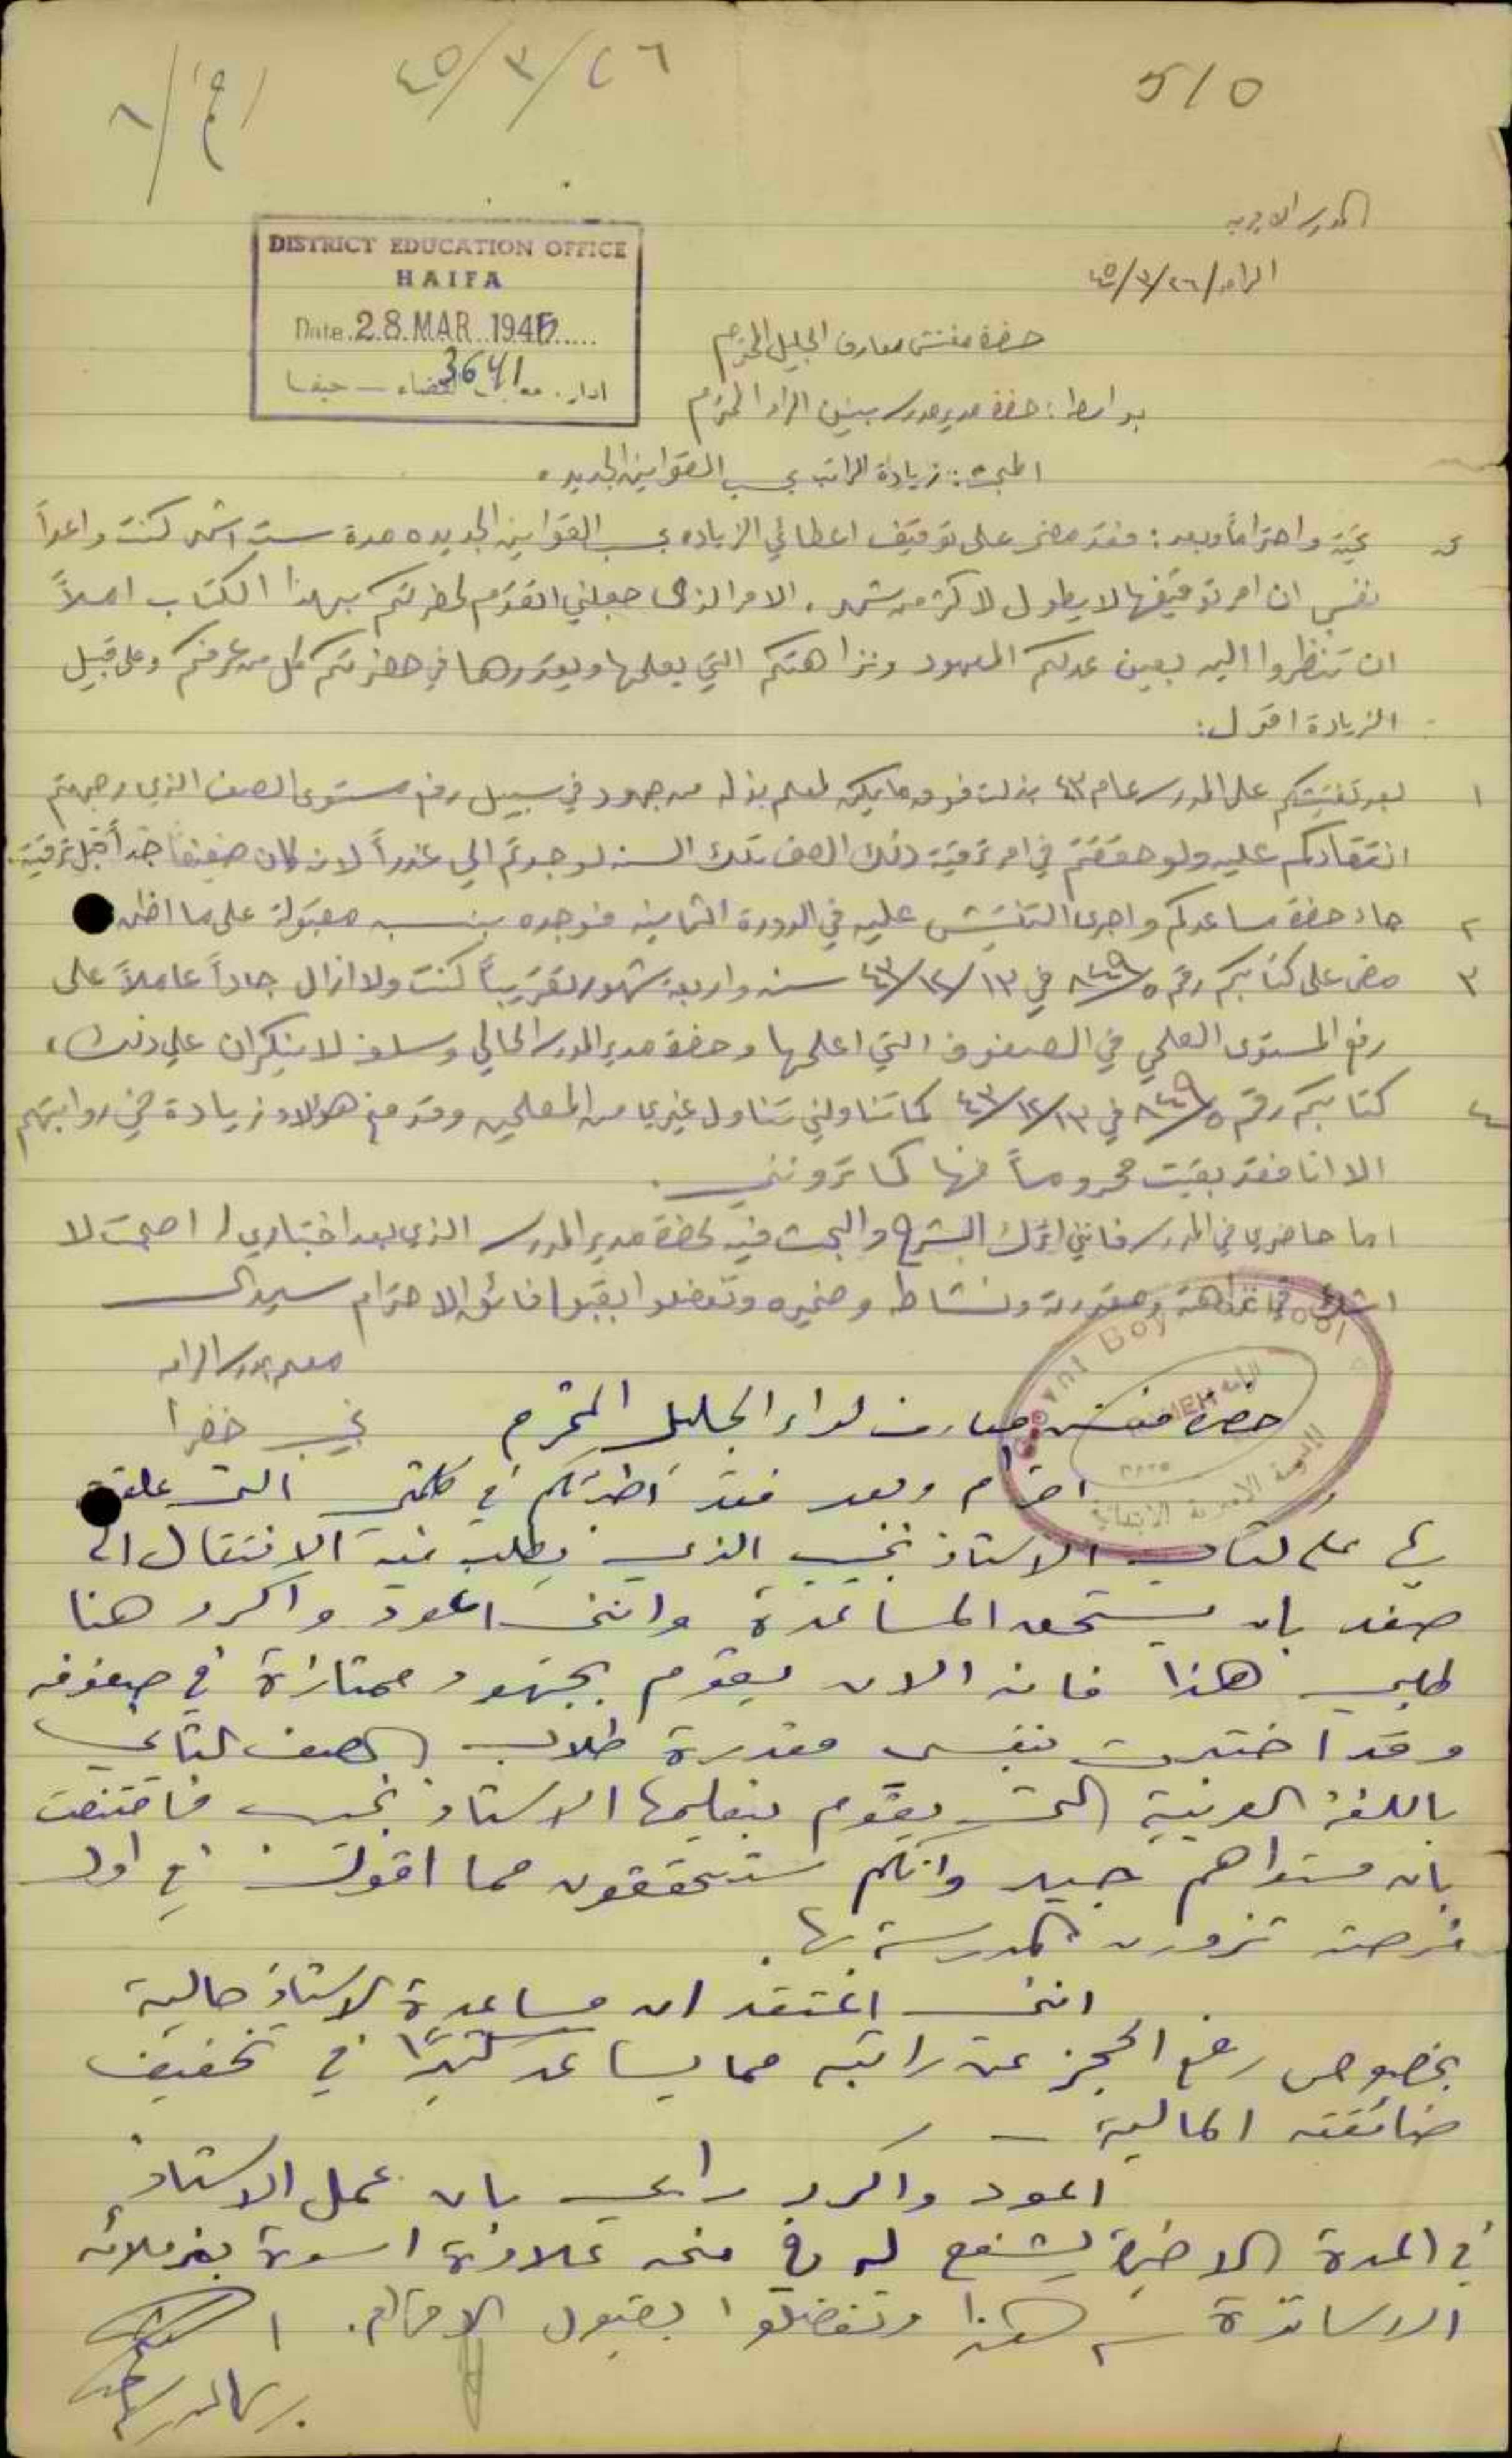 510
٤٥/٣/٢٦
DISTRICT EDUCATION OFFICE
HAIFA
Date. 28. MAR. 1945.....
3641
القضاء — حيفا
الرامه/٤٥/٣/٢٦
حضرة مفتش معارف الجليل المحترم
بواسطة: حضرة مدير مدرسة بنين الرامه المحترم
المبحث: زيادة الراتب بحسب القوانين الجديده.
تحية واحتراماً وبعد: فقد مضى على توقيف اعطائي الزياده بحسب القوانين الجديده مدة ست اشهر كنت واعداً
نفسي ان امر توقيفها لا يطول لاكثر من شهر. الامر الذي جعلني اتقدم لحضرتكم بهذا الكتاب املاً
ان تنظروا اليه بعين عدلكم المعهود ونزاهتكم التي يعلمها ويقدرها في حضرتكم كل من عرفكم وعلى قبيل
الزيادة اقول:
١ بعد تفتيشكم على المدرسه عام ٤٣ بذلت فوق ما يمكن لمعلم بذله من جهود في سبيل رفع مستوى الصف الذي وجهتم
انتقادكم عليه ولو حققتم في امر ترقية ذلك الصف تلك السنه لوجدتم الي عذراً لانه كان ضعيفاً جداً قبل ترقيته.
٢ جاء حضرة مساعدكم واجرى التفتيش عليه في الدورة الثانيه فوجده بنسبه مقبولة على ما اظن
٣ مضى على كتابكم رقم في ٤٣/١٢/١٣ سنه واربعة شهور تقريباً كنت ولا ازال جاداً عاملاً على
رفع المستوى العلمي في الصفوف التي اعلمها وحضرة مدير المدرسه الحالي وسلفه لا ينكران علي ذلك،
٤ كتابكم رقم في ٤٣/١٢/١٣ كما تناولني تناول غيري من المعلمين وقد منح هؤلاء زيادة في رواتبهم
الا انا فقد بقيت محروماً منها كما ترونني.
اما حاضري في المدرسه فانني اترك الشرح والبحث فيه لحضرة مدير المدرسه الذي بعد اختباري له اصبحت لا
اشك في نزاهته ومقدرته ونشاطه وضميره وتفضلوا بقبول فائق الاحترام سيدي
معلم بمدرسة الرامه
نجيب خضرا
حضرة مفتش معارف لواء الجليل المحترم
احترام وبعد فقد اخبرتكم في كلمتي التي علقت
بها على كتاب الاستاذ نجيب الذي يطلب فيه الانتقال الى
صفد بانه يستحق المساعدة وانني اعود واكرر هنا
طلبي هذا فانه الان يقوم بجهود ممتازة في صفوفه
وقد اختبرت بنفسي مقدرة طلاب الصف الثاني
باللغة العربية التي يقوم بتعليمها الاستاذ نجيب فاقتنعت
بان مستواهم جيد وانكم ستتحققون مما اقول في اول
فرصة تزورون المدرسة بها.
انني اعتقد ان مساعدة الاستاذ حالية
بخصوص رفع الحجز عن راتبه مما يساعد كثيرًا في تخفيف
ضائقته المالية —
اعود واكرر رأيي بان عمل الاستاذ
في المدة الاخيرة يشفع له في منحه علاوة اسوة بزملائه
الاساتذة هذا وتفضلوا بقبول الاحترام.